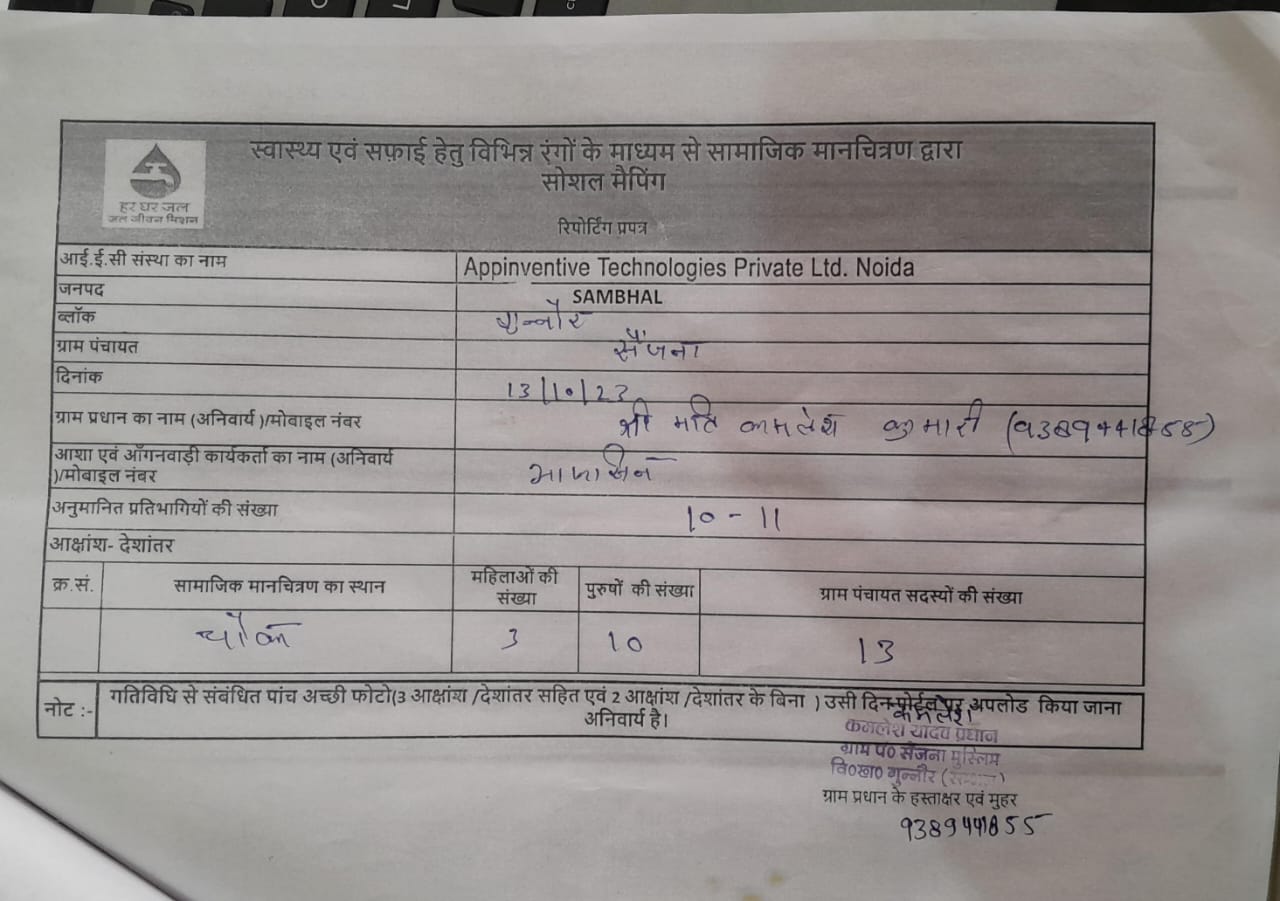 स्वास्थ्य एवं सफ़ाई हेतु विभिन्न रंगों के माध्यम से सामाजिक मानचित्रण द्वारा
सोशल मैपिंग
हर घर जल
जल जीवन मिशन
रिपोर्टिंग प्रपत्र
आई.ई.सी संस्था का नाम Appinventive Technologies Private Ltd. Noida
जनपद SAMBHAL
ब्लॉक गुन्नौर
ग्राम पंचायत सैंजना
दिनांक 13/10/23
ग्राम प्रधान का नाम (अनिवार्य )/मोबाइल नंबर श्री मति कमलेश कुमारी
आशा एवं आँगनवाड़ी कार्यकर्ता का नाम (अनिवार्य
)/मोबाइल नंबर
अनुमानित प्रतिभागियों की संख्या 10 - 11
आक्षांश- देशांतर
क्र.सं. सामाजिक मानचित्रण का स्थान महिलाओं की संख्या पुरुषों की संख्या ग्राम पंचायत सदस्यों की संख्या
चौक 3 10 13
नोट :- गतिविधि से संबंधित पांच अच्छी फोटो(3 आक्षांश /देशांतर सहित एवं 2 आक्षांश /देशांतर के बिना ) उसी दिन पोर्टल पर अपलोड किया जाना
अनिवार्य है।
कमलेश
कमलेश यादव प्रधान
ग्राम पं० सैंजना मुस्लिम
वि०ख० गुन्नौर
ग्राम प्रधान के हस्ताक्षर एवं मुहर
9389441855